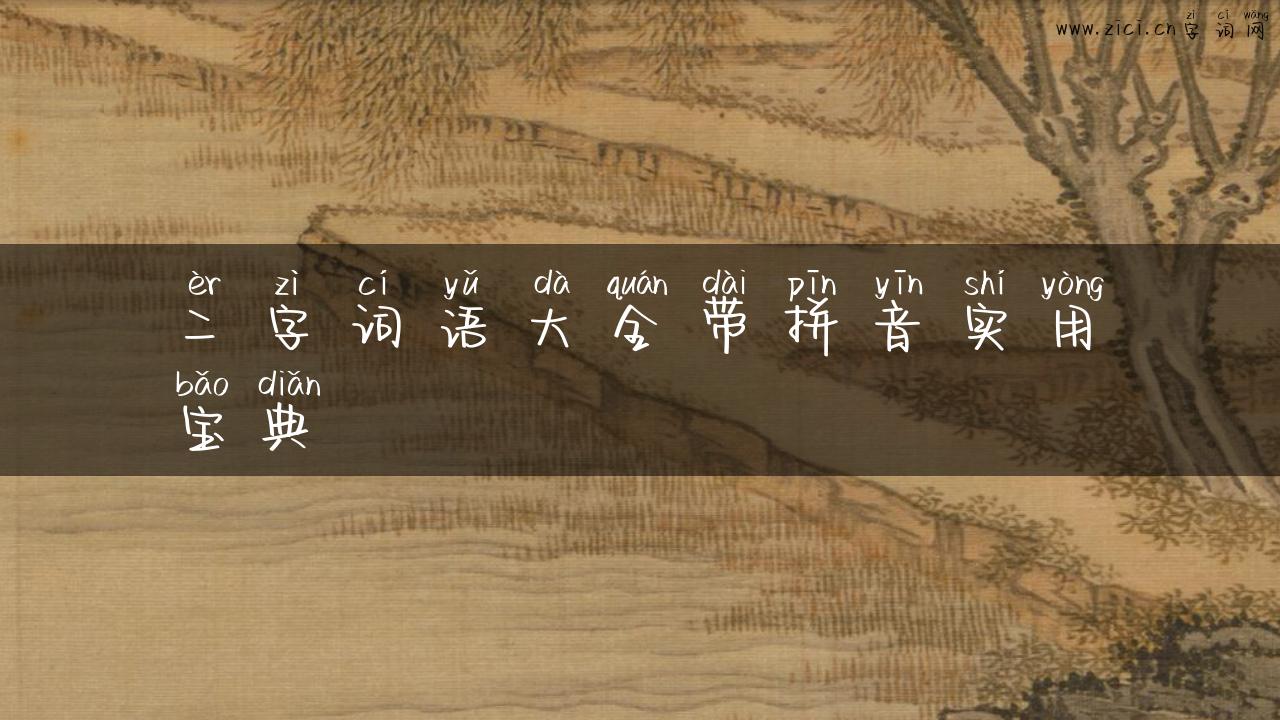 zì cí wǎng
www.zici.cn 字词网
èr zì cí yǔ dà quán dài pīn yīn shí yòng
二字词语大全带拼音实用
bǎo diǎn
宝典